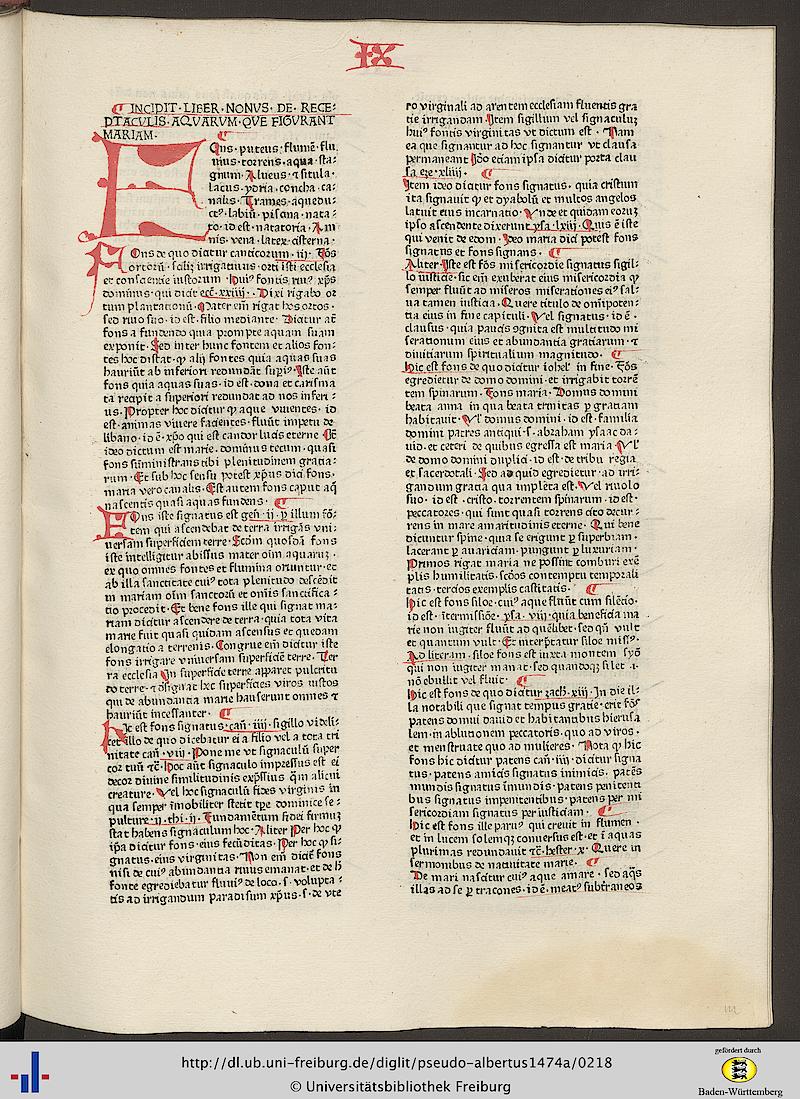 IX
INCIPIT · LIBER · NONVS · DE · RECE-
PTACVLIS · AQVARVM · QVE FIGVRANT
MARIAM ·
Ons · puteus · flumē · flu
uius · torrens · aqua · sta-
gnum · Alueus · ⁊ situla ·
lacus · ydria · concha · ca-
nalis · Trames · aquedu-
to · id est · natatoria · Am
nis · vena · latex · cisterna ·
Ons de quo dicitur canticorum · iij · Fōs
et conscientie iustorum
dominus · qui dicit ecc̄ · xxiiij · Dixi rigabo or
tum plantationū · Mater em̄ rigat hos ortos ·
sed riuo suo · id est · filio mediante · Dicitur aūt
fons a fundendo quia prompte aquam suam
exponit · Sed inter hunc fontem et alios fon-
tes hoc distat · ꝙ alij fontes quia aquas suas
hauriūt ab inferiori redundāt supiꝰ · Iste aūt
fons quia aquas suas · id est · dona et carisma
ta recipit a superiori redundat ad nos inferi-
us · Propter hoc dicitur ꝙ aque viuentes · id
est · animas viuere facientes · fluūt impetu de
libano · id ē · xp̄o qui est candor lucis eterne
ideo dictum est marie · dominus tecum · quasi
fons sūministrans tibi plenitudinem gratia-
rum · Et sub hoc sensu potest xp̄us dici fons ·
maria vero canalis · Est autem fons caput aq̄
nascentis quasi aquas fundens ·
Ons iste signatus est gen̄ · ij · ꝑ illum fō-
tem qui ascendebat de terra irrigās vni-
uersam superficiem terre · Scd̄m quosdā fons
iste intelligitur abissus mater oīm aquaruꝫ ·
ex quo omnes fontes et flumina oriuntur · et
ab illa sanctitate cuiꝰ tota plenitudo descēdit
in mariam oīm sanctorū et oīnis sanctifica-
tio procedit · Et bene fons ille qui signat ma-
riam dicitur ascendere de terra · quia tota vita
marie fuit quasi quidam ascensus et quedam
elongatio a terrenis · Congrue em̄ dicitur iste
fons irrigare vniuersam superficiē terre · Ter
ra ecclesia In superficie terre apparet pulcritu
do terre · ⁊ designat hec superficies viros iustos
qui de abundantia marie hauserunt omnes ⁊
hauriūt incessanter ·
Ic est fons signatus · can̄ · iiij · sigillo videli-
cet illo de quo dicebatur ei a filio vel a tota tri
nitate can̄ · viij · Pone me vt signaculū super
cor tuū ⁊c̄ · Hoc aūt signaculo impressus est ei
decor diuine similitudinis exp̄ssius q̄m alicui
creature · Vel hoc signaculū fides virginis in
qua semper imobiliter stetit tp̄e dominice se-
pulture · ij · thi · ij · Fundamētum fidei firmuꝫ
stat habens signaculum hoc · Aliter Per hoc ꝙ
ip̄a dicitur fons · eius fecūditas · Per hoc ꝙ si-
gnatus · eius virginitas · Non em̄ dicit̄ fons
nisi de cuiꝰ abundantia riuus emanat · et de h̄
fonte egrediebatur fluuiꝰ de loco · s · volupta-
tis ad irrigandum paradisum xp̄us · s · de vte
ro virginali ad arentem ecclesiam fluentis gra
tie irrigandam · Item sigillum vel signaculuꝫ
huiꝰ fontis virginitas vt dictum est · Nam
ea que signantur ad hoc signantur vt clausa
permaneant Iō̄o etiam ipsa dicitur porta clau
sa eze · xliiij ·
Item ideo dicitur fons signatus · quia cristum
ita signauit ꝙ et dyabolū et multos angelos
latuit eius incarnatio · Vnde et quidam eoruꝫ
ipso ascendente dixerunt ysa · lxiij · Quis ē iste
qui venit de edom · Ideo maria dici potest fons
signatus et fons signans ·
Aliter · Iste est fōs misericordie signatus sigil-
lo iusticie · sic em̄ exuberat eius misericordia ꝙ
semper fluūt ad miseros miserationes eiꝰ sal-
ua tamen iusticia · Quere titulo de omīpoten-
tia eius in fine capituli · Vel signatus · id ē ·
clausus · quia paucis cognita est multitudo mi
serationum eius et abundantia gratiarum · ⁊
diuitiarum spiritualium magnitudo ·
Hic est fons de quo dicitur iohel · in fine · Fōs
egredietur de domo domini · et irrigabit torrē
tem spinarum · Fons maria · Domus domini
beata anna in qua beata trinitas ꝑ gratiam
habitauit · Vl̄ domus domini · id est · familia
domini patres antiqui · s · abraham ysaac da-
uid · et ceteri de quibus egressa est maria · Vl̄
de domo domini duplici · id est · de tribu regia
et sacerdotali · Sed ad quid egredietur · ad irri-
gandum gratia qua impleta est · Vel riuolo
suo · id est · cristo · torrentem spinarum · id est ·
peccatores · qui sunt quasi torrens cito decur-
rens in mare amaritudinis eterne · Qui bene
dicuntur spine · quia se erigunt ꝑ superbiam ·
lacerant ꝑ auariciam · pungunt ꝑ luxuriam ·
Primos rigat maria ne possint comburi exē
plis humilitatis · scd̄os contemptu temporali
tatis · tercios exemplis castitatis ·
Hic est fons siloe · cuiꝰ aque fluūt cum silētio ·
id est · itermissiōe · ysa · viij · quia beneficia ma
rie non iugiter fluūt ad quēlibet · sed qn̄ vult
et quantum vult · Et interp̄tatur siloe missꝰ ·
Ad literam · siloe fons est iuxta montem syō
qui non iugiter manat · sed quandoqꝫ silet · i·
nō ebullit vel fluit ·
Hic est fons de quo dicitur zach̄ · xiij · In die il-
la notabili que signat tempus gratie · erit fōs
patens domui dauid et habitantibus hierusa
lem · in ablutionem peccatoris · quo ad viros ·
et menstruate quo ad mulieres · Nota ꝙ hic
fons hic dicitur patens can̄ · iiij · dicitur signa
tus · patens amicis signatus inimicis · patēs
mundis signatus īmundis · patens penitenti
bus signatus impenitentibus · patens per mi
sericordiam signatus per iusticiam ·
Hic est fons ille paruꝰ qui creuit in flumen ·
et in lucem solemqꝫ conuersus est · et ī aquas
plurimas redundauit ⁊c̄ · hester · x · Quere in
sermonibus de natiuitate marie ·
De mari nascitur cuiꝰ aque amare · sed aq̄s
illas ad se ꝑ tracones · id ē · meatꝰ subt̄raneos
http://dl.ub.uni-freiburg.de/diglit/pseudo-albertus1474a/0218
© Universitätsbibliothek Freiburg
gefördert durch
Baden-Württemberg